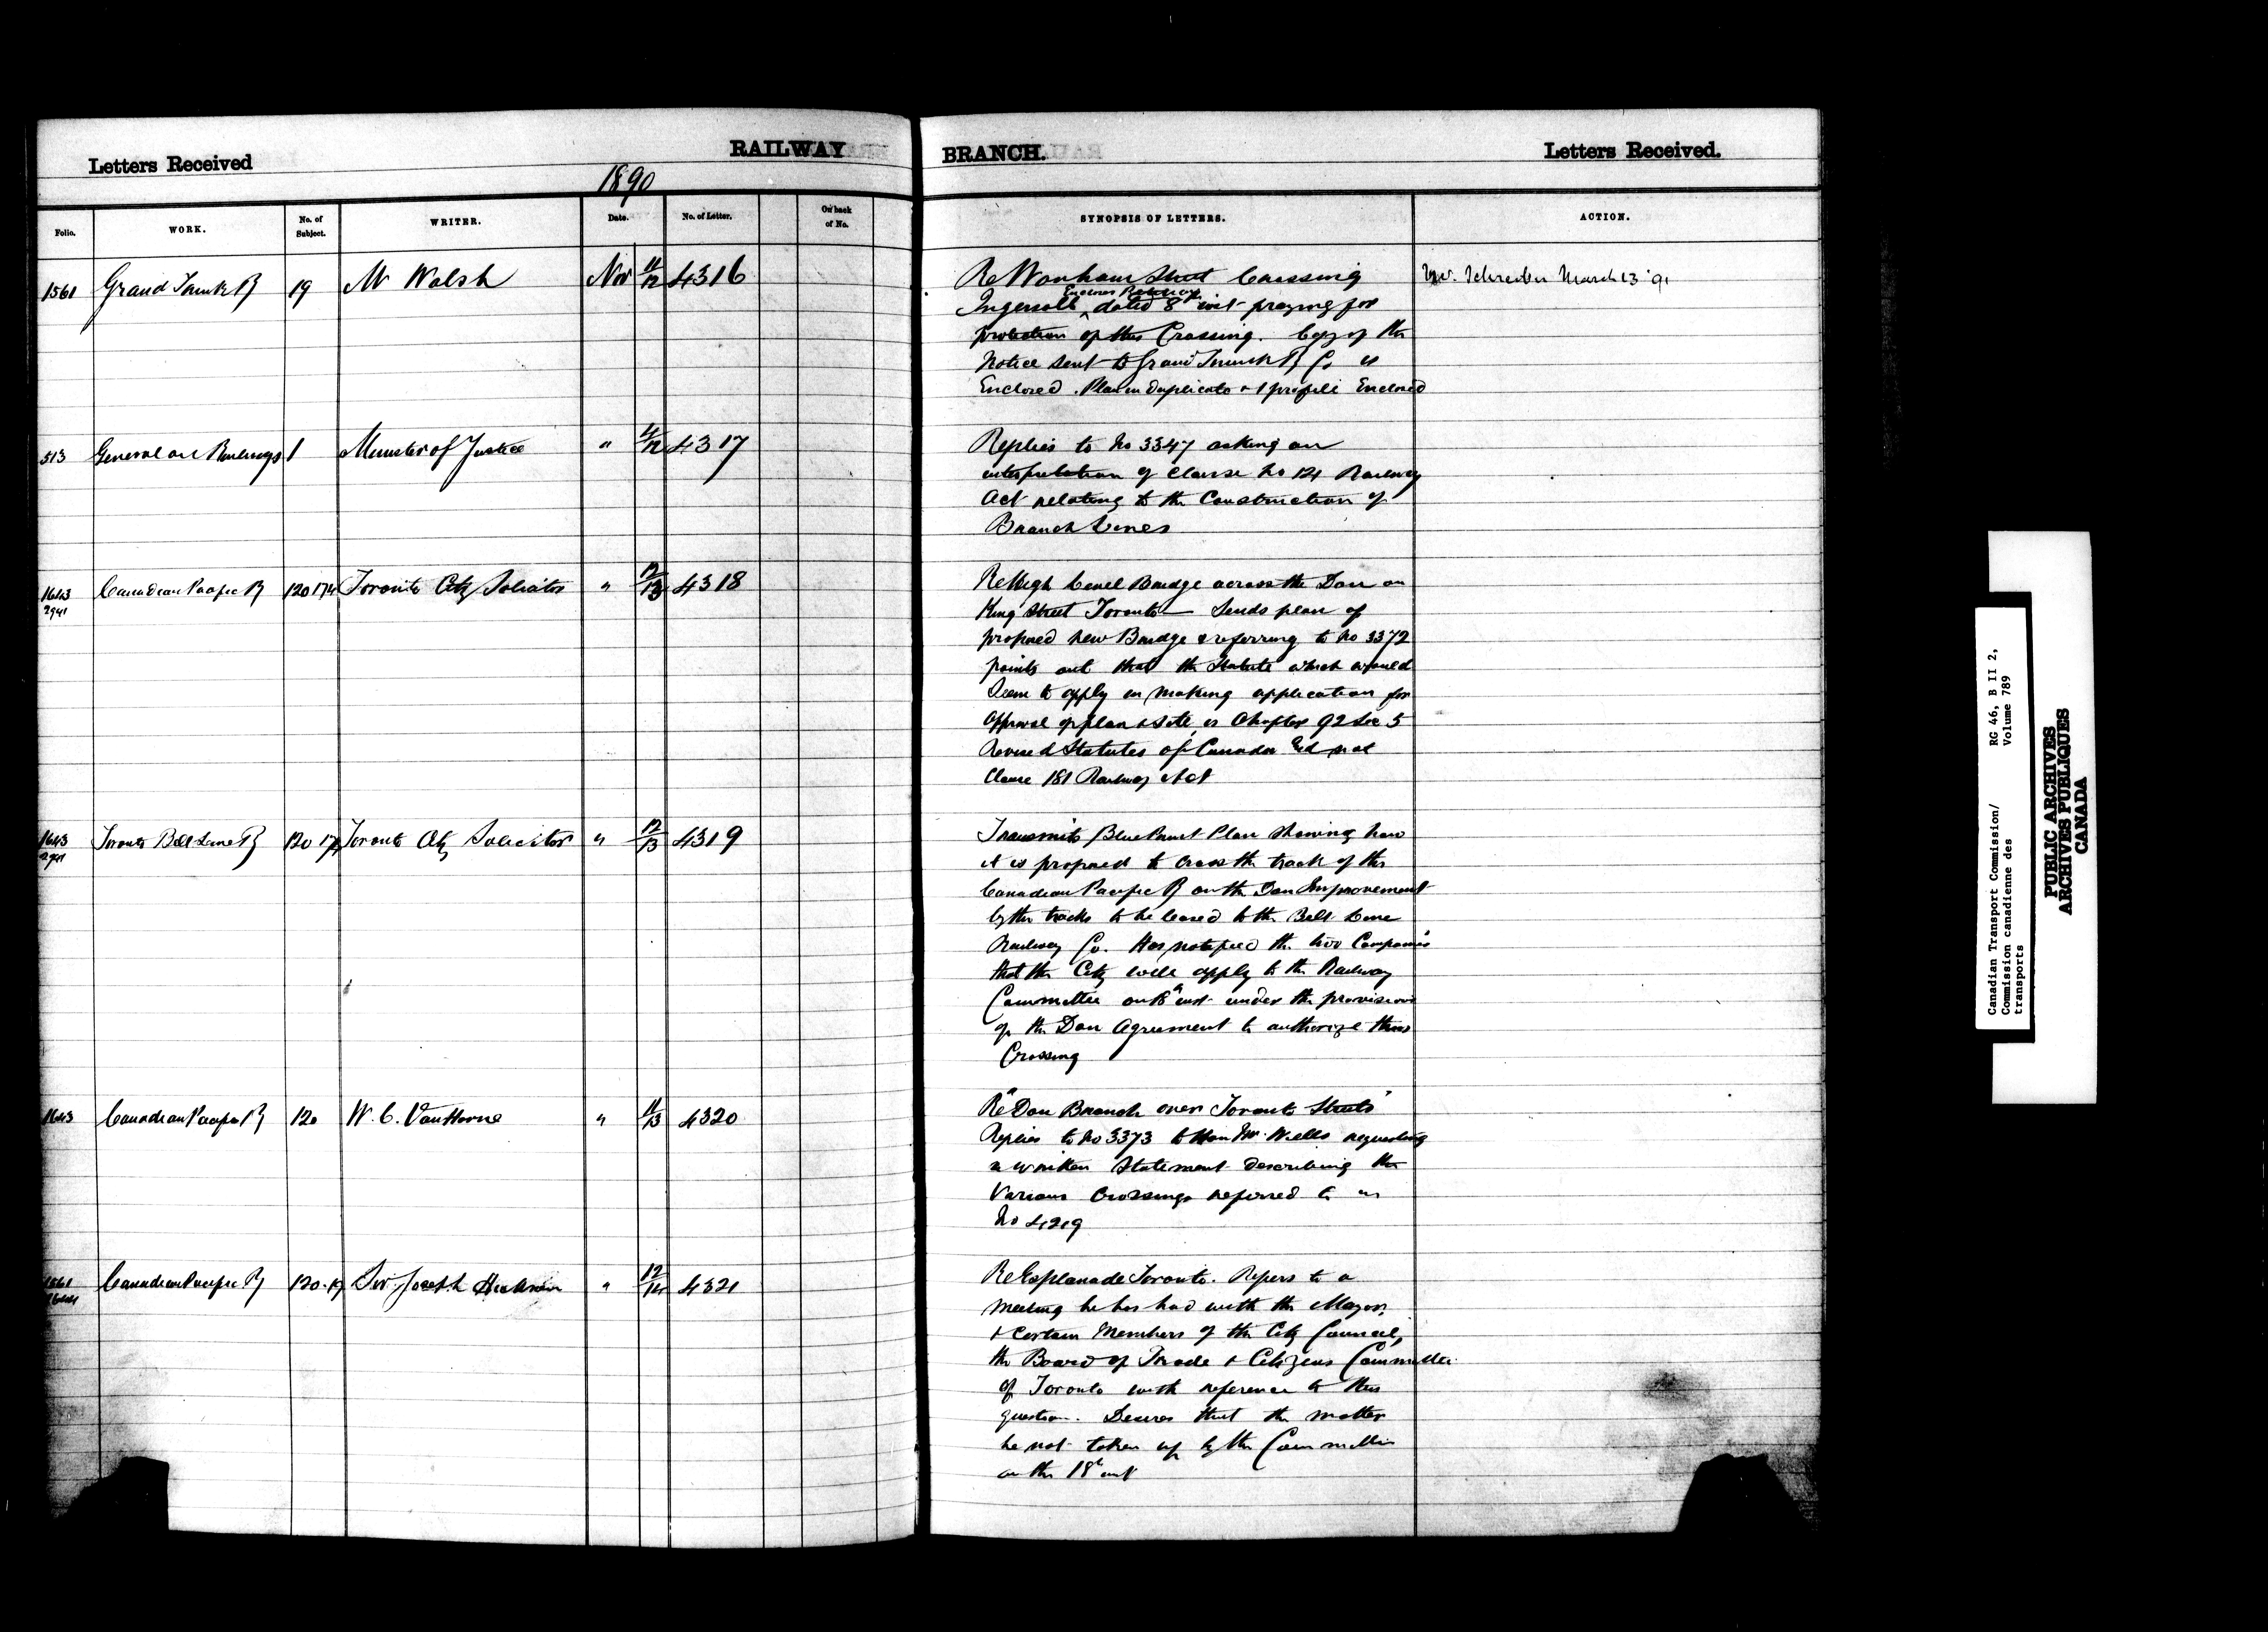 Letters Received
RAILWAY
BRANCH.
Letters Received.
1890
Folio.
WORK.
No. of Subject.
WRITER.
Date.
No. of Letter.
On back of No.
SYNOPSIS OF LETTERS.
ACTION.
1561 Grand Trunk Ry 19 M Walsh Nov 11/12 4316
Re Wonham Street Crossing
Ingersoll, Encloses dated 8th inst praying for
protection of this Crossing. Copy of the
Notice sent to Grand Trunk Ry Co is
Enclosed. Plan in duplicate & 1 profile Enclosed
Mr. Schreiber March 23 '91
513 General on Railways 1 Minister of Justice " 4317
Replies to No 3347 asking an
interpretation of Clause No 121 Railway
Act relating to the Construction of
Branch Lines
1643 2941 Canadian Pacific Ry 120 174 Toronto City Solicitor " 12/13 4318
Re High Level Bridge across the Don on
King Street Toronto — Sends plan of
proposed new Bridge & referring to No 3372
points out that the Statute which would
Seem to apply in making application for
Approval of plan & site, is Chapter 92 Sec 5
Revised Statutes of Canada and not
Clause 181 Railway Act
1643 2941 Toronto Belt Line Ry 120 174 Toronto City Solicitor " 12/13 4319
Transmits Blue Print Plan showing how
it is proposed to cross the track of the
Canadian Pacific Ry on the Don Improvement
by the tracks to be leased to the Belt Line
Railway Co. Has notified the two Companies
that the City will apply to the Railway
Committee on 18th inst under the provisions
of the Don Agreement to authorize this
Crossing
1643 Canadian Pacific Ry 120 W. C. Van Horne " 11/13 4320
Re "Don Branch over Toronto Streets"
Replies to No 3373 to Hon Mr. Wells requesting
a written Statement describing the
Various Crossings referred to in
No 4219
1561 Canadian Pacific Ry 120-19 Sir Joseph Hickson " 12/14 4321
Re Esplanade Toronto. Refers to a
meeting he has had with the Mayor,
& Certain Members of the City Council,
the Board of Trade & Citizens Committee
of Toronto with reference to this
question. Desires that the matter
be not taken up by the Committee
on the 18th inst
Canadian Transport Commission/ RG 46, B II 2,
Commission canadienne des Volume 789
transports
PUBLIC ARCHIVES
ARCHIVES PUBLIQUES
CANADA